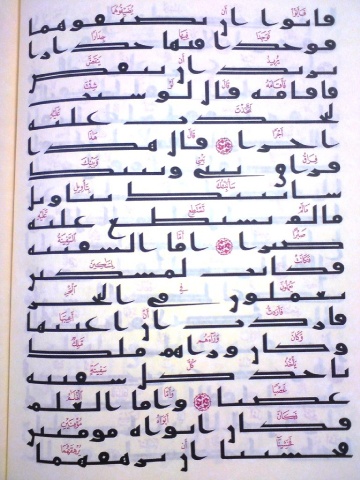 فابوا ان يضيفوهما
فوجدا فيها جدارا
يريد ان ينقض
فاقامه قال لو شيت
لتخذت عليه
اجرا قال هذا
فراق بيني وبينك
سانبيك بتاويل
ما لم تستطع عليه
صبرا اما السفينه
فكانت لمسكين
يعملون في البحر
فاردت ان اعيبها
وكان وراهم ملك
ياخذ كل سفينه
غصبا واما الغلم
فكان ابواه مومنين
فخشينا ان يرهقهما